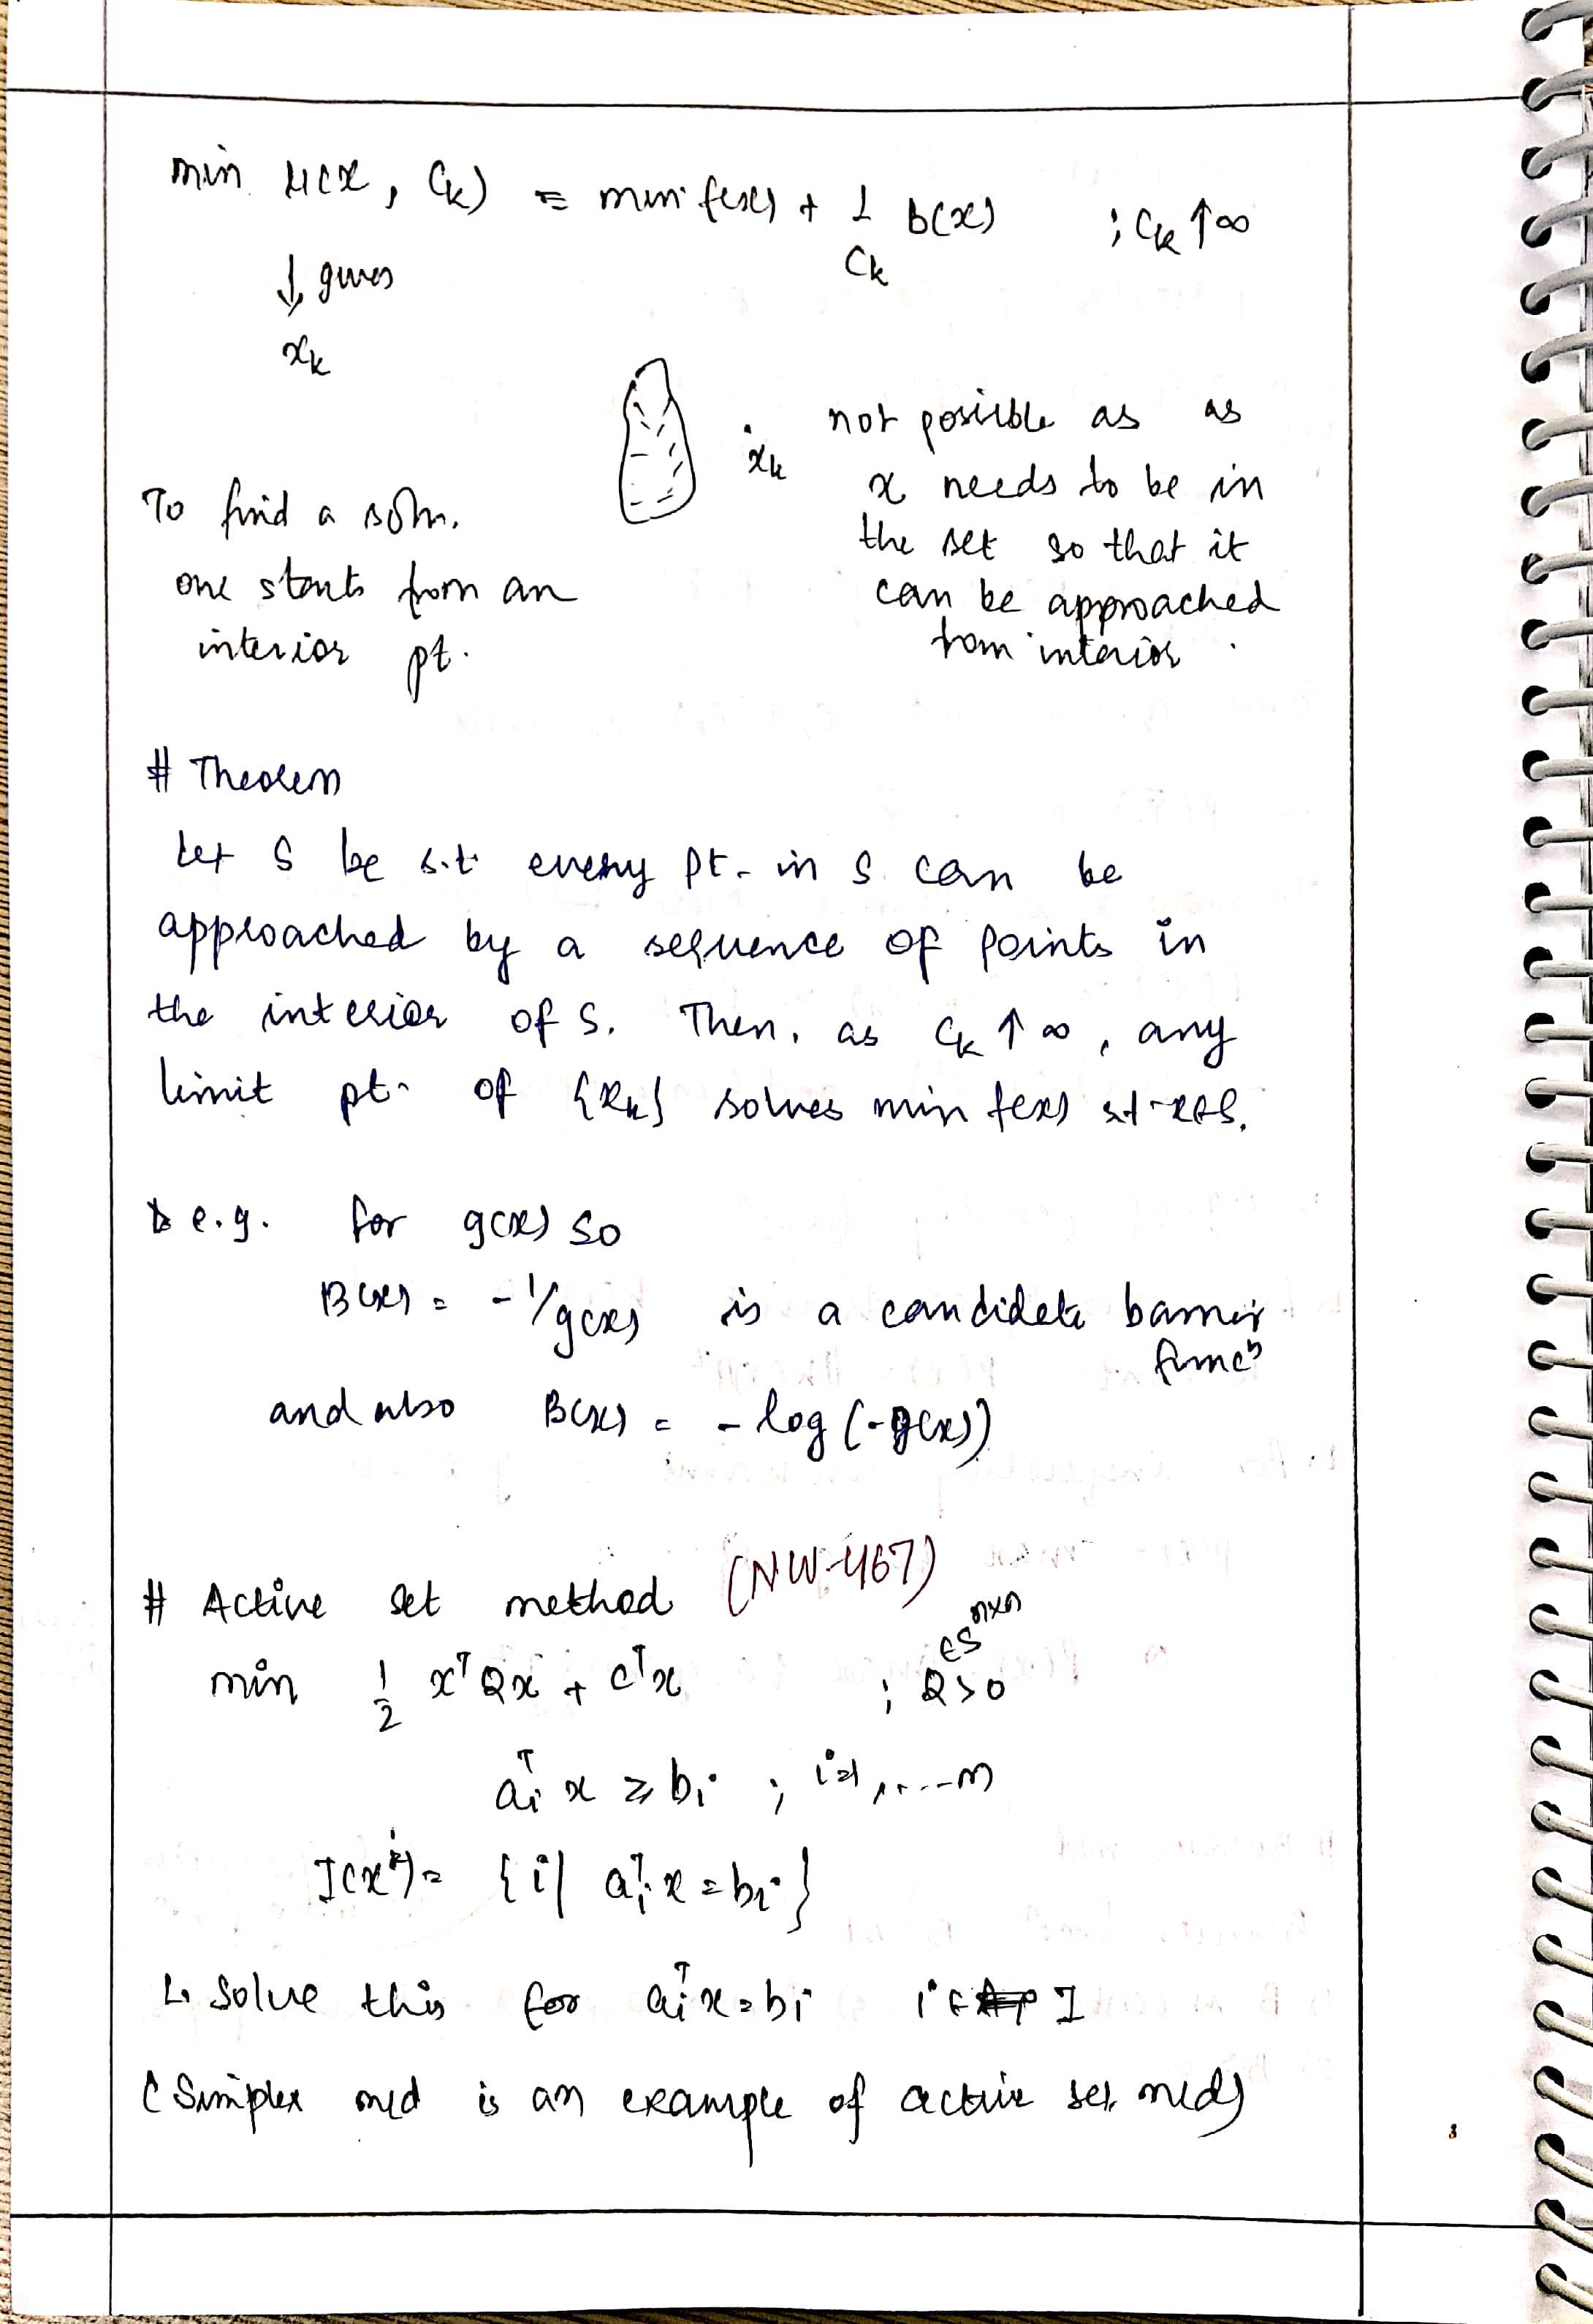 min μ(x, Ck) = min f(x) + 1/Ck b(x) ; Ck ↑ ∞
↓ gives
xk
xk not possible as as
x needs to be in
the set so that it
can be approached
from interior.
To find a soln.
one starts from an
interior pt.
# Theorem
Let S be s.t. every pt. in S can be
approached by a sequence of points in
the interior of S. Then, as Ck ↑ ∞, any
limit pt. of {xk} solves min f(x) st x∈S.
e.g. for g(x) ≤ 0
B(x) = -1/g(x) is a candidate barrier
funcn
and also B(x) = - log (-g(x))
# Active set method (NW-467)
min 1/2 xᵀQx + cᵀx ; Q>0 ∈ Sⁿˣⁿ
aiᵀx ≥ bi ; i=1,...-m
I(x*) = {i| aiᵀx = bi}
↳ Solve this for aiᵀx = bi i ∈ I
(Simplex mtd is an example of active set mtd)